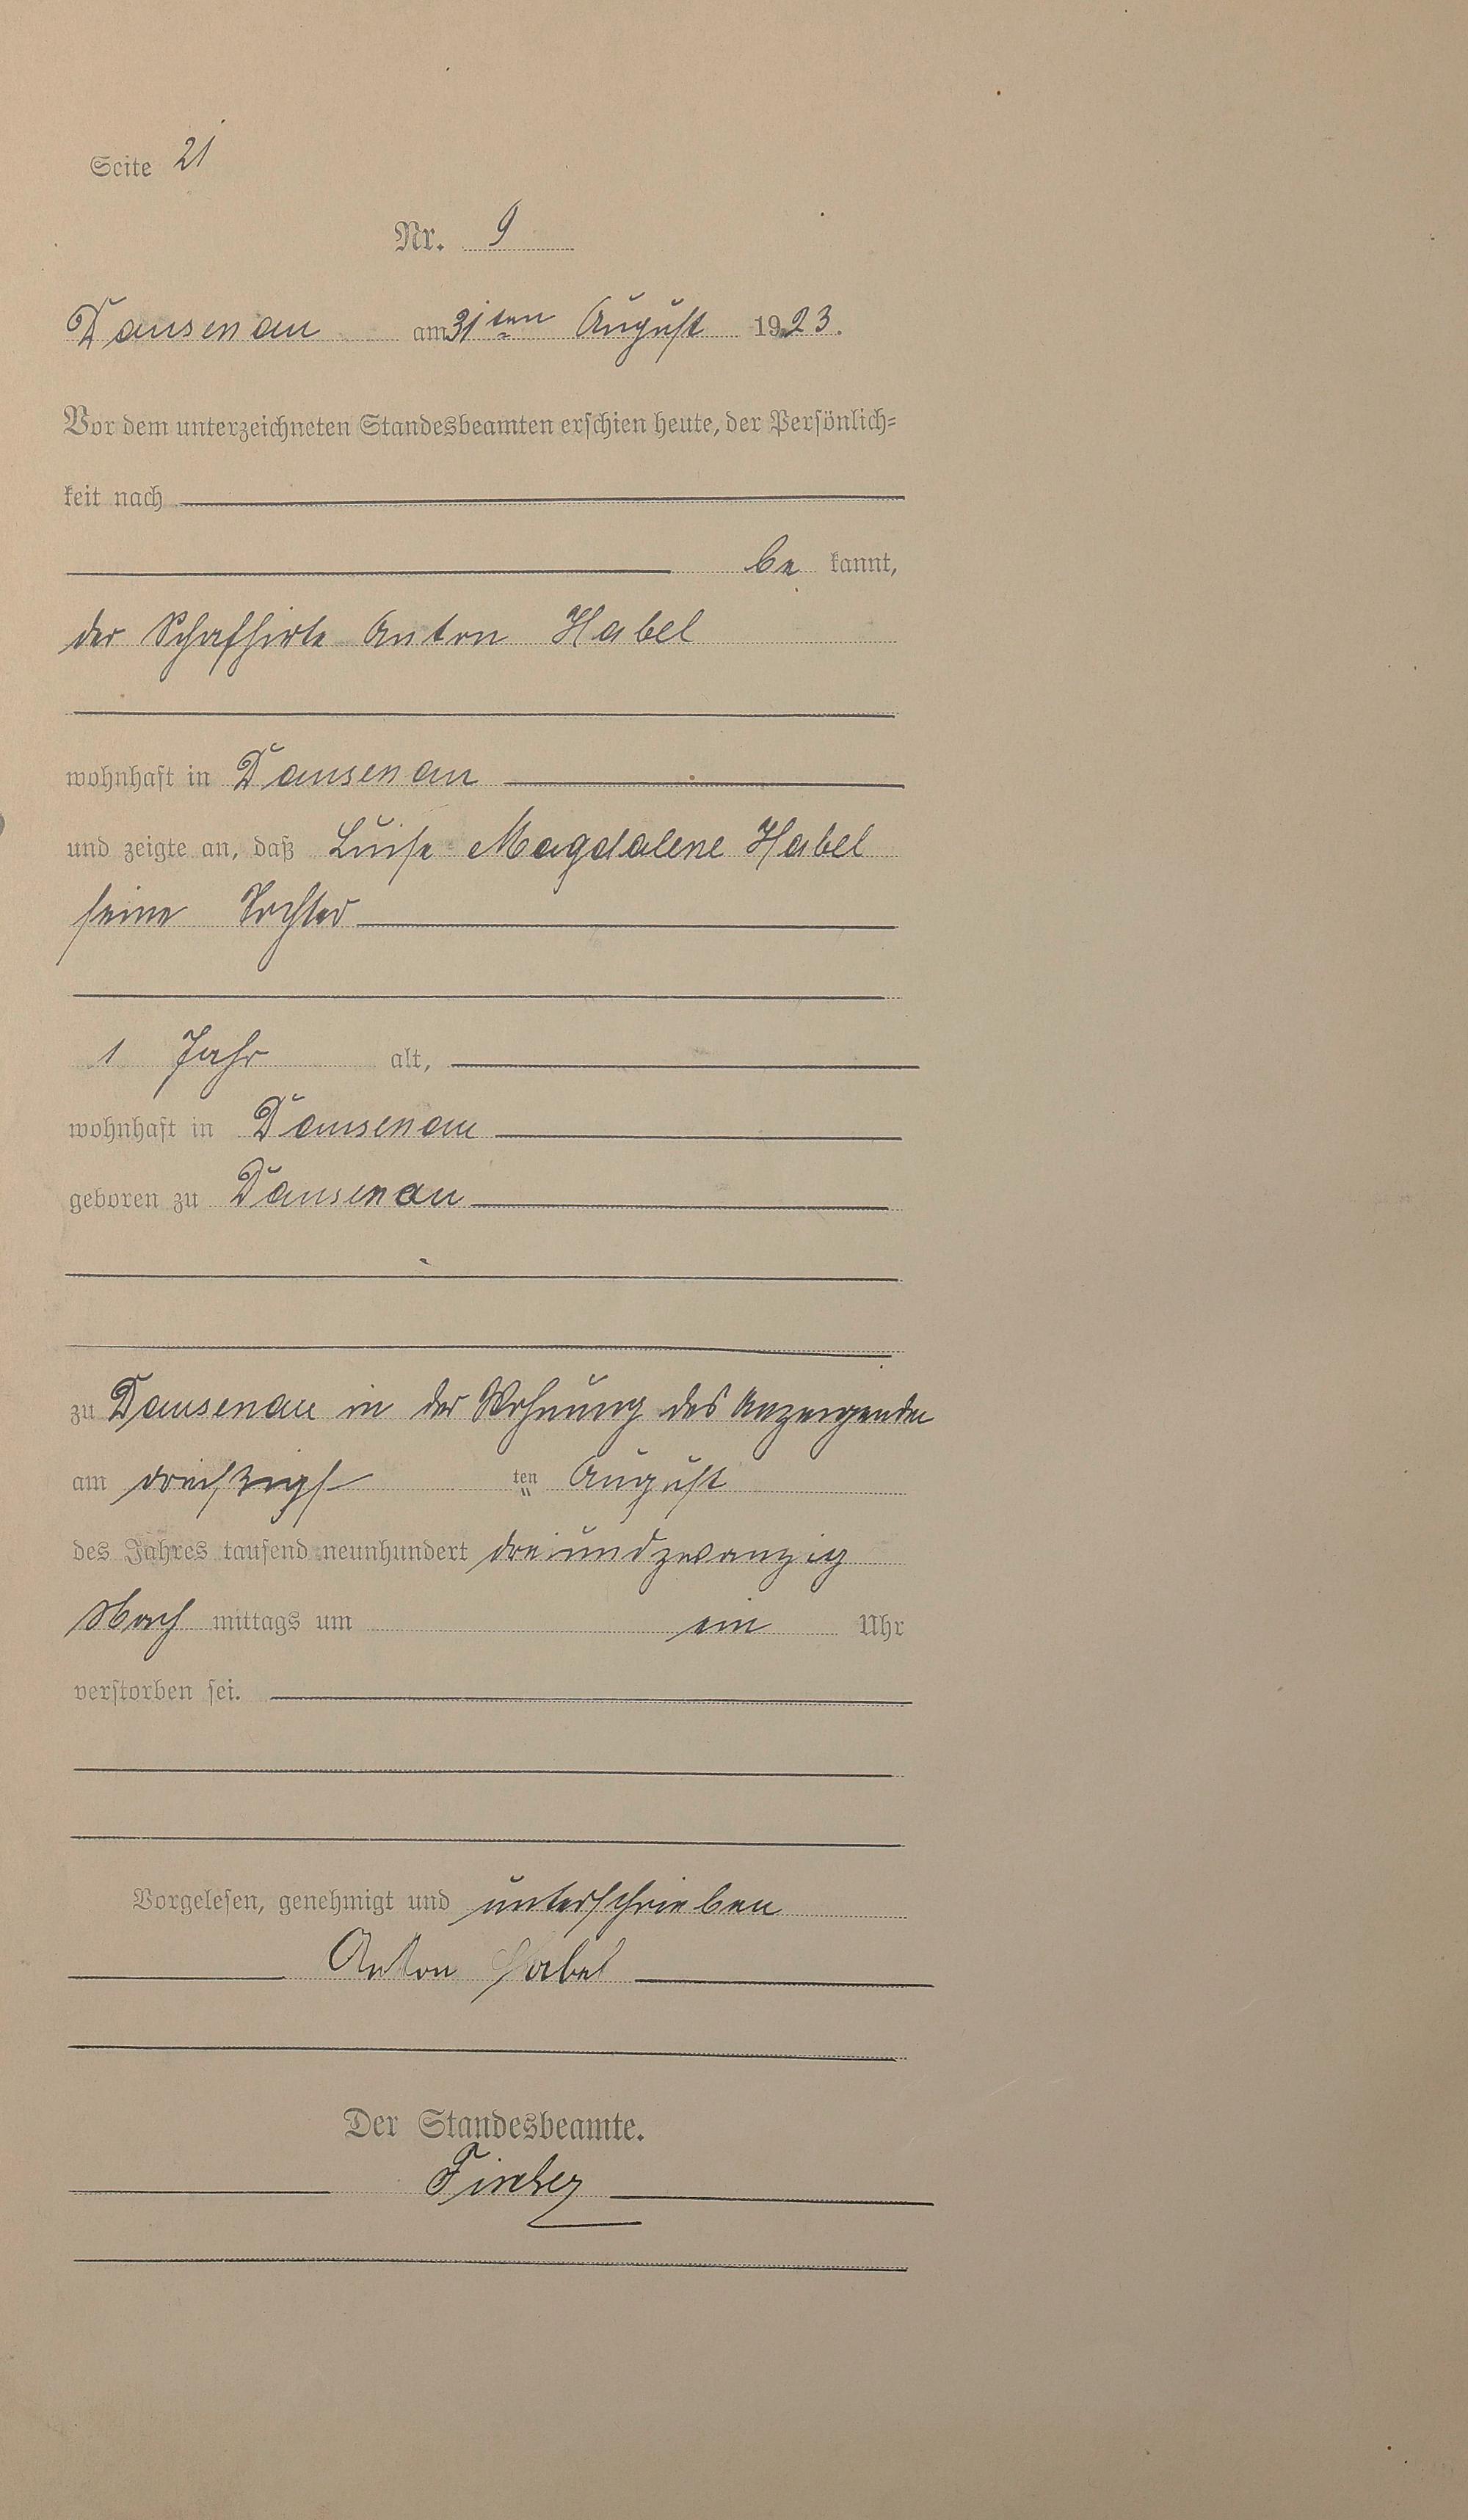 Seite 21
Nr. 9
Dausenau am 31ten August 1923.
Vor dem unterzeichneten Standesbeamten erschien heute, der Persönlich-
keit nach
be kannt,
der Schafhirte Anton Habel
wohnhaft in Dausenau
und zeigte an, daß Luise Magdalene Habel
seine Tochter
1 Jahr alt,
wohnhaft in Dausenau
geboren zu Dausenau
zu Dausenau in der Wohnung des Anzeigenden
am dreißigs ten August
des Jahres tausend neunhundert dreiundzwanzig
Nach mittags um ein Uhr
verstorben sei.
Vorgelesen, genehmigt und unterschrieben
Anton Habel
Der Standesbeamte.